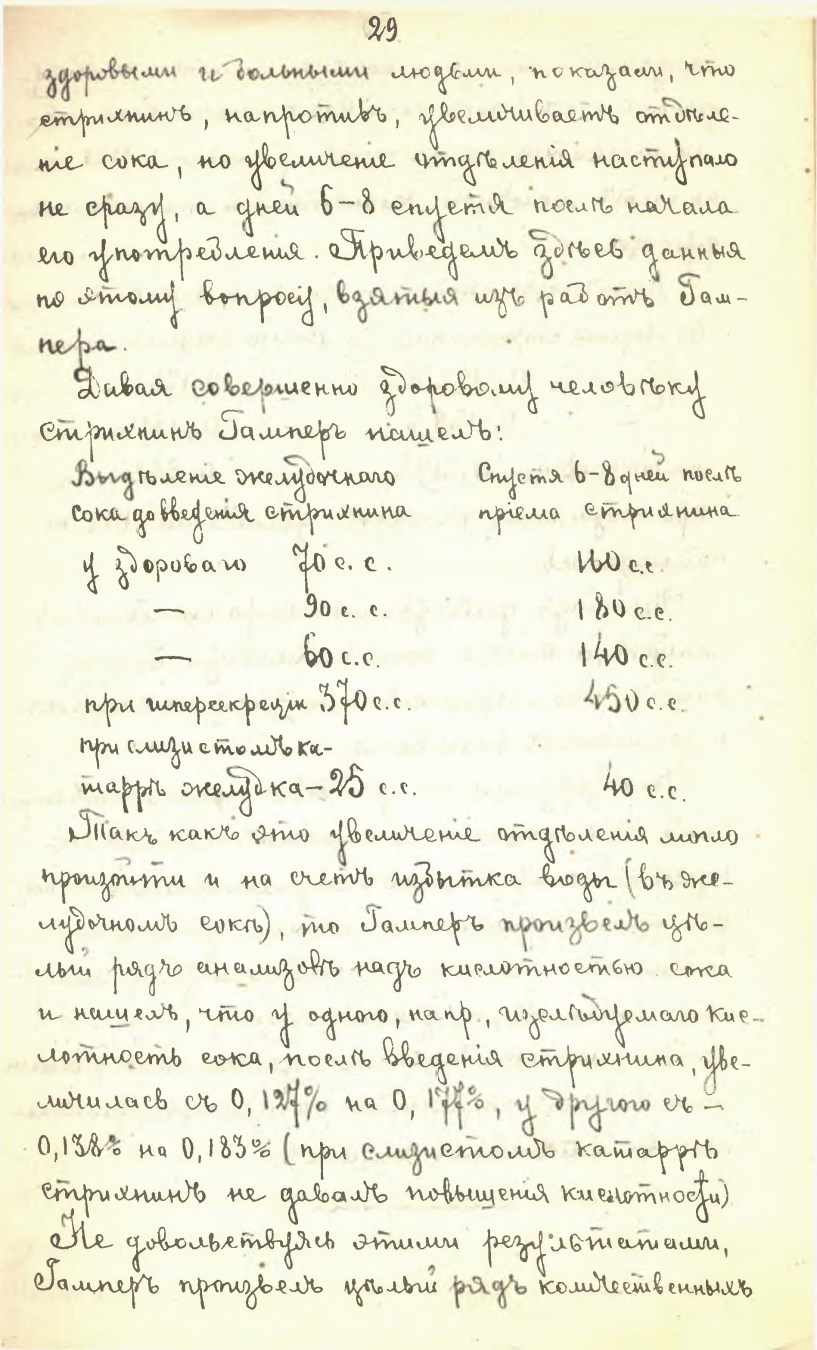 29
здоровыми и больными людьми, показали, что
стрихнинъ, напротивъ, увеличиваетъ отдѣле-
ніе сока, но увеличеніе отдѣленія наступало
не сразу, а дней 6-8 спустя послѣ начала
его употребленія. Приведемъ здѣсь данныя
по этому вопросу, взятыя изъ работъ Гам-
пера.
Давая совершенно здоровому человѣку
стрихнинъ Гамперъ нашелъ:
Выдѣленіе желудочнаго Спустя 6-8 дней послѣ
сока до введенія стрихнина пріема стрихнина
у здороваго 70 с. с. 110 с.с.
— 90 с. с. 180 с.с.
— 60 с.с. 140 с.с.
при гиперсекреціи 370 с.с. 450 с.с.
при слизистомъ ка-
таррѣ желудка — 25 с.с. 40 с.с.
Такъ какъ это увеличеніе отдѣленія могло
произойти и на счетъ избытка воды (въ же-
лудочномъ сокѣ), то Гамперъ произвелъ цѣ-
лый рядъ анализовъ надъ кислотностью сока
и нашелъ, что у одного, напр., изслѣдуемаго кис-
лотность сока, послѣ введенія стрихнина, уве-
личилась съ 0,127% на 0,177%, у другого съ —
0,138% на 0,183% (при слизистомъ катаррѣ
стрихнинъ не давалъ повышенія кислотности)
Не довольствуясь этими результатами,
Гамперъ произвелъ цѣлый рядъ количественныхъ